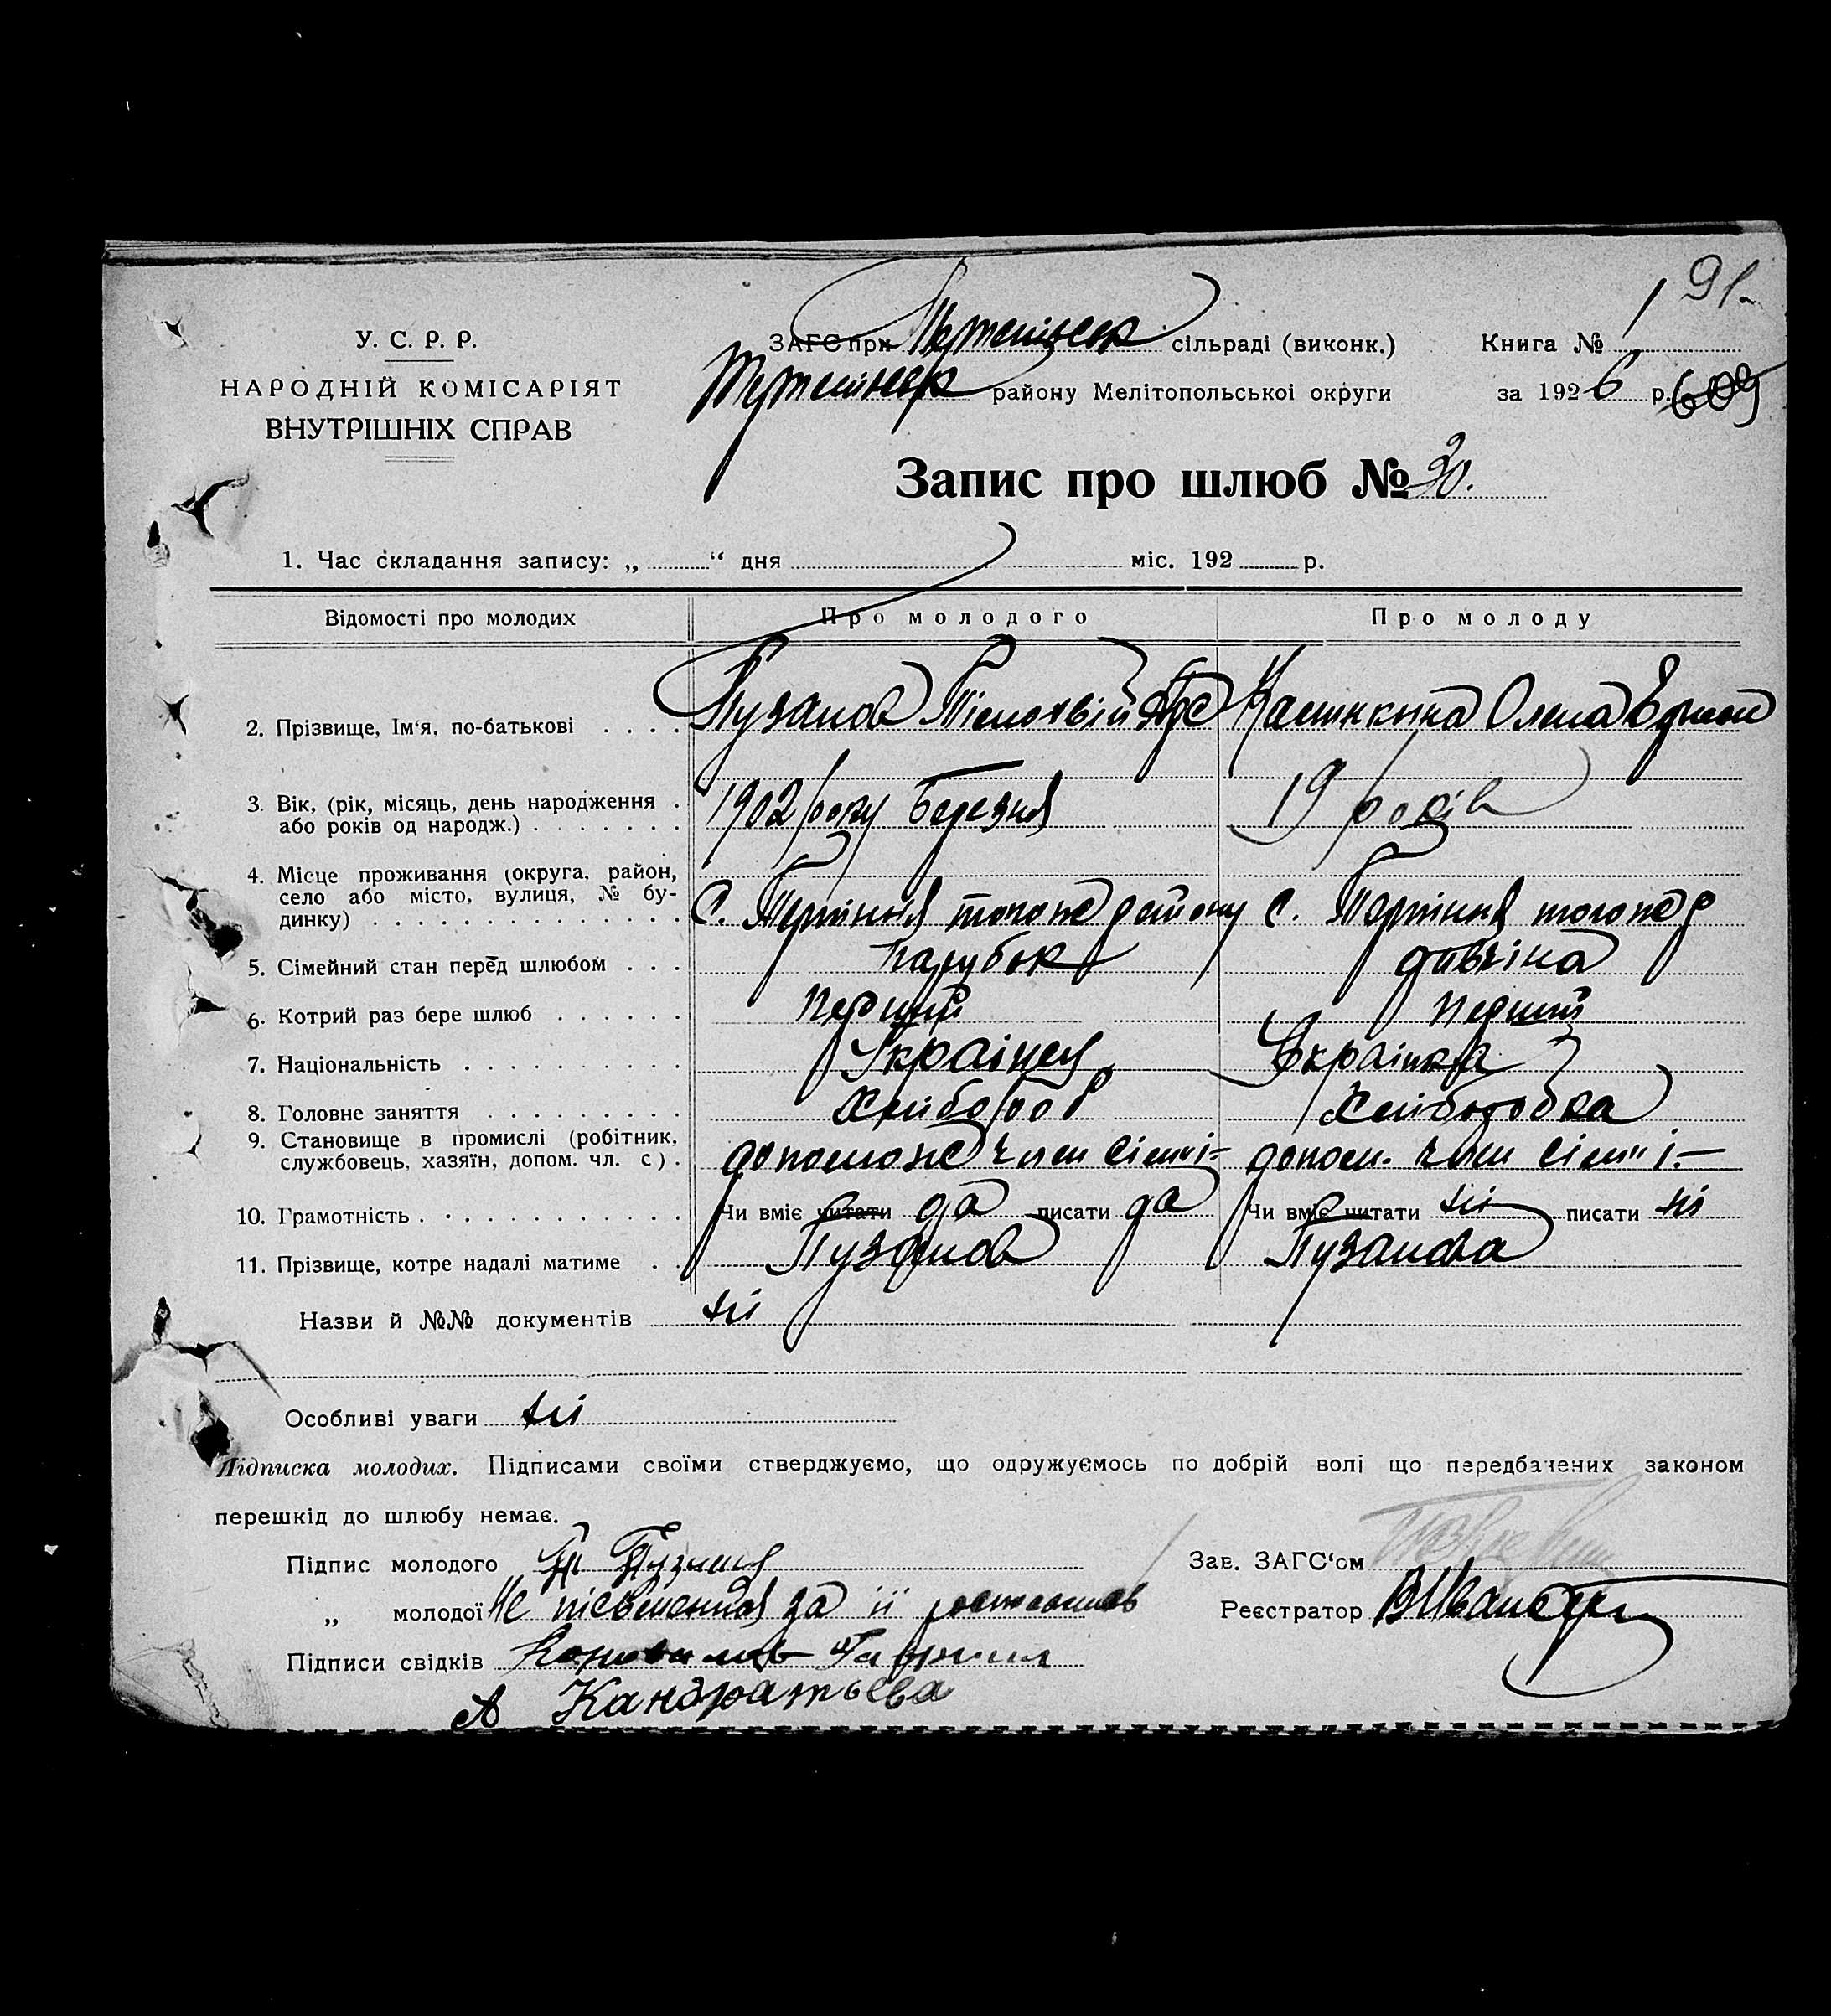 91.
У. С. Р. Р.
НАРОДНІЙ КОМІСАРІЯТ
ВНУТРІШНІХ СПРАВ
ЗАГС при сільраді (виконк.)
району Мелітопольської округи
Книга № 1
за 1926 р. 609
Запис про шлюб № 30.
1. Час складання запису: „ “ дня міс. 192 р.
Відомості про молодих Про молодого Про молоду
2. Прізвище, Ім'я, по-батькові . . . . Пузанов Тімохвій Олена
3. Вік, (рік, місяць, день народження .
або років од народж.) . . . . . . . 1902 року Березня 19 років
4. Місце проживання (округа, район,
село або місто, вулиця, № бу-
динку) . . . . . . . . . . . . . . с. Терпіння того же району с. Терпіння того же р
5. Сімейний стан перед шлюбом . . . парубок дівчіна
6. Котрий раз бере шлюб . . . . . . перший перший
7. Національність . . . . . . . . . . Українец Українка
8. Головне заняття . . . . . . . . . хлібороб хліборобка
9. Становище в промислі (робітник,
службовець, хазяїн, допом. чл. с) . допоможе член сімиі- допом. член сімиі.-
10. Грамотність . . . . . . . . . . . Чи вміє читати да писати да Чи вміє читати ні писати ні
11. Прізвище, котре надалі матиме . . Пузанов Пузанова
Назви й №№ документів ні
Особливі уваги ні
Підписка молодих. Підписами своїми стверджуємо, що одружуємось по добрій волі що передбачених законом
перешкід до шлюбу немає.
Підпис молодого Зав. ЗАГС'ом
„ молодої Не пісьменная за її Реєстратор
Підписи свідків Коновалов Гавриил
А Кандратьева